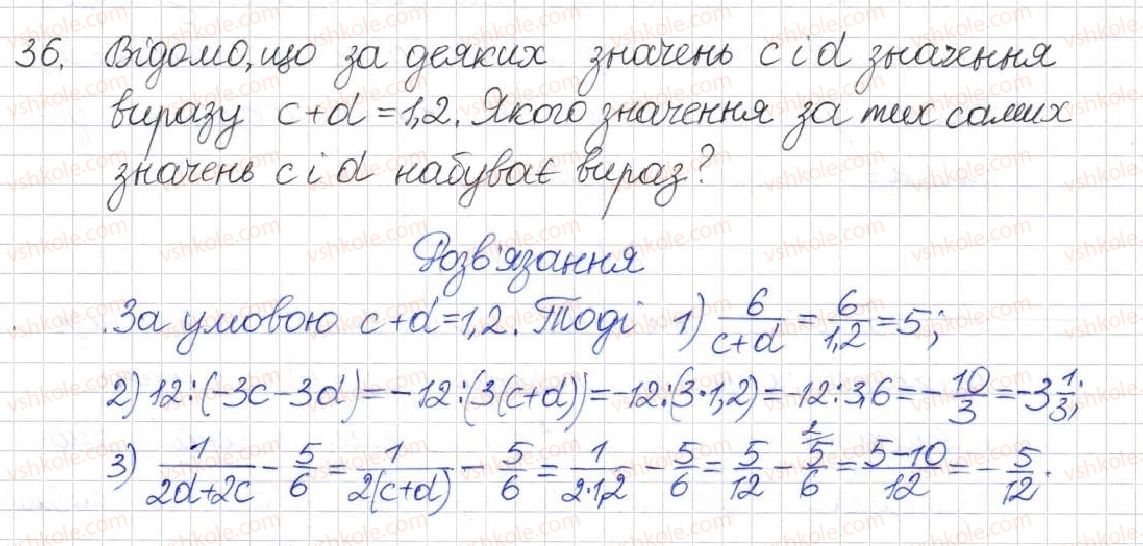 36. Відомо, що за деяких значень c і d значення
виразу c+d=1,2. Якого значення за тих самих
значень c і d набуває вираз?
Розв'язання
За умовою c+d=1,2. Тоді 1) 6/(c+d) = 6/1,2 = 5;
2) 12:(-3c-3d)=-12:(3(c+d))=-12:(3·1,2)=-12:3,6=-10/3=-3 1/3;
3) 1/(2d+2c) - 5/6 = 1/(2(c+d)) - 5/6 = 1/(2·1,2) - 5/6 = 5/12 - 5/6 (2) = (5-10)/12 = -5/12.